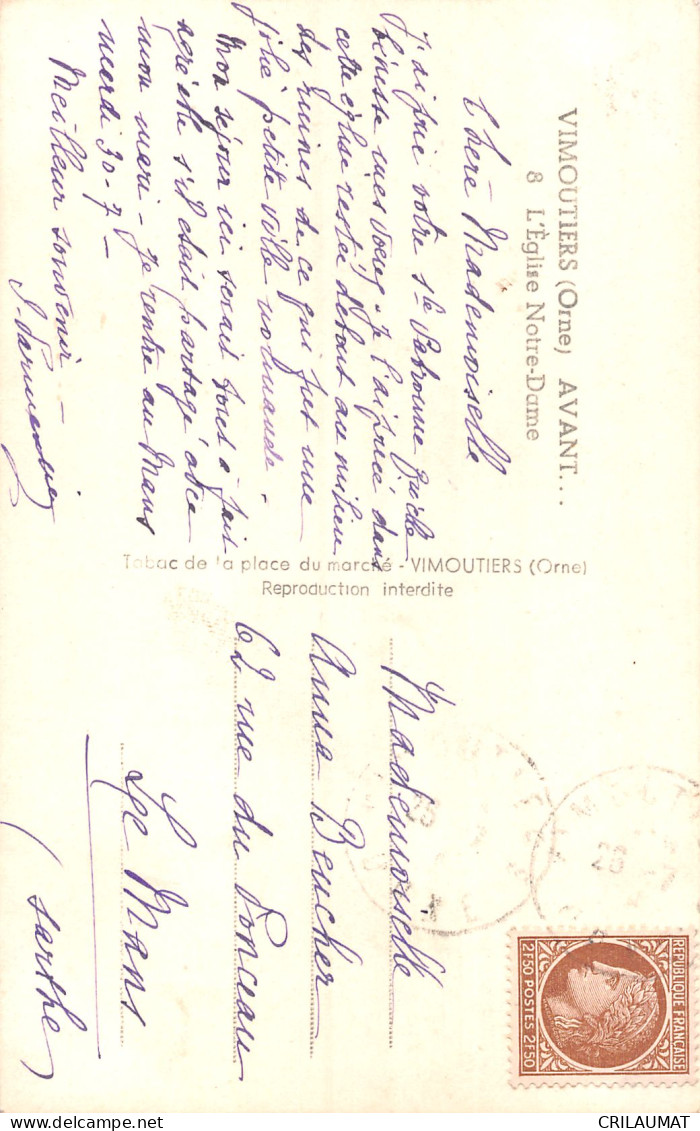 VIMOUTIERS (Orne) AVANT...
8 L'Église Notre-Dame
Chère Mademoiselle
J'ai prié votre Ste Patronne qu'elle
bénisse mes voeux. Je l'ai priée dans
cette église restée debout au milieu
des ruines de ce qui fut une
jolie petite ville normande.
Mon séjour ici serait tout à fait
agréable s'il était partagé avec
mon mari - Je rentre au Mans
mardi 30-7-
Meilleur souvenir -
Tabac de la place du marché - VIMOUTIERS (Orne)
Reproduction interdite
Mademoiselle
Anna Beucher
62 rue du Ponceau
Le Mans
(Sarthe)
REPUBLIQUE FRANÇAISE
2F50 POSTES 2F50
CRILAUMAT